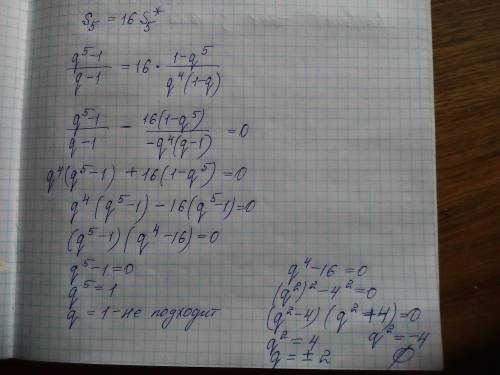 S₅ = 16 S₅*
(q⁵-1)/(q-1) = 16 · (1-q⁵)/(q⁴(1-q))
(q⁵-1)/(q-1) - (16(1-q⁵))/(-q⁴(q-1)) = 0
q⁴(q⁵-1) + 16(1-q⁵) = 0
q⁴(q⁵-1) - 16(q⁵-1) = 0
(q⁵-1)(q⁴-16) = 0
q⁵-1 = 0
q⁵ = 1
q = 1 - не подходит
q⁴-16 = 0
(q²)² - 4² = 0
(q²-4)(q²+4) = 0
q² = 4 q² = -4
q = ± 2 ∅